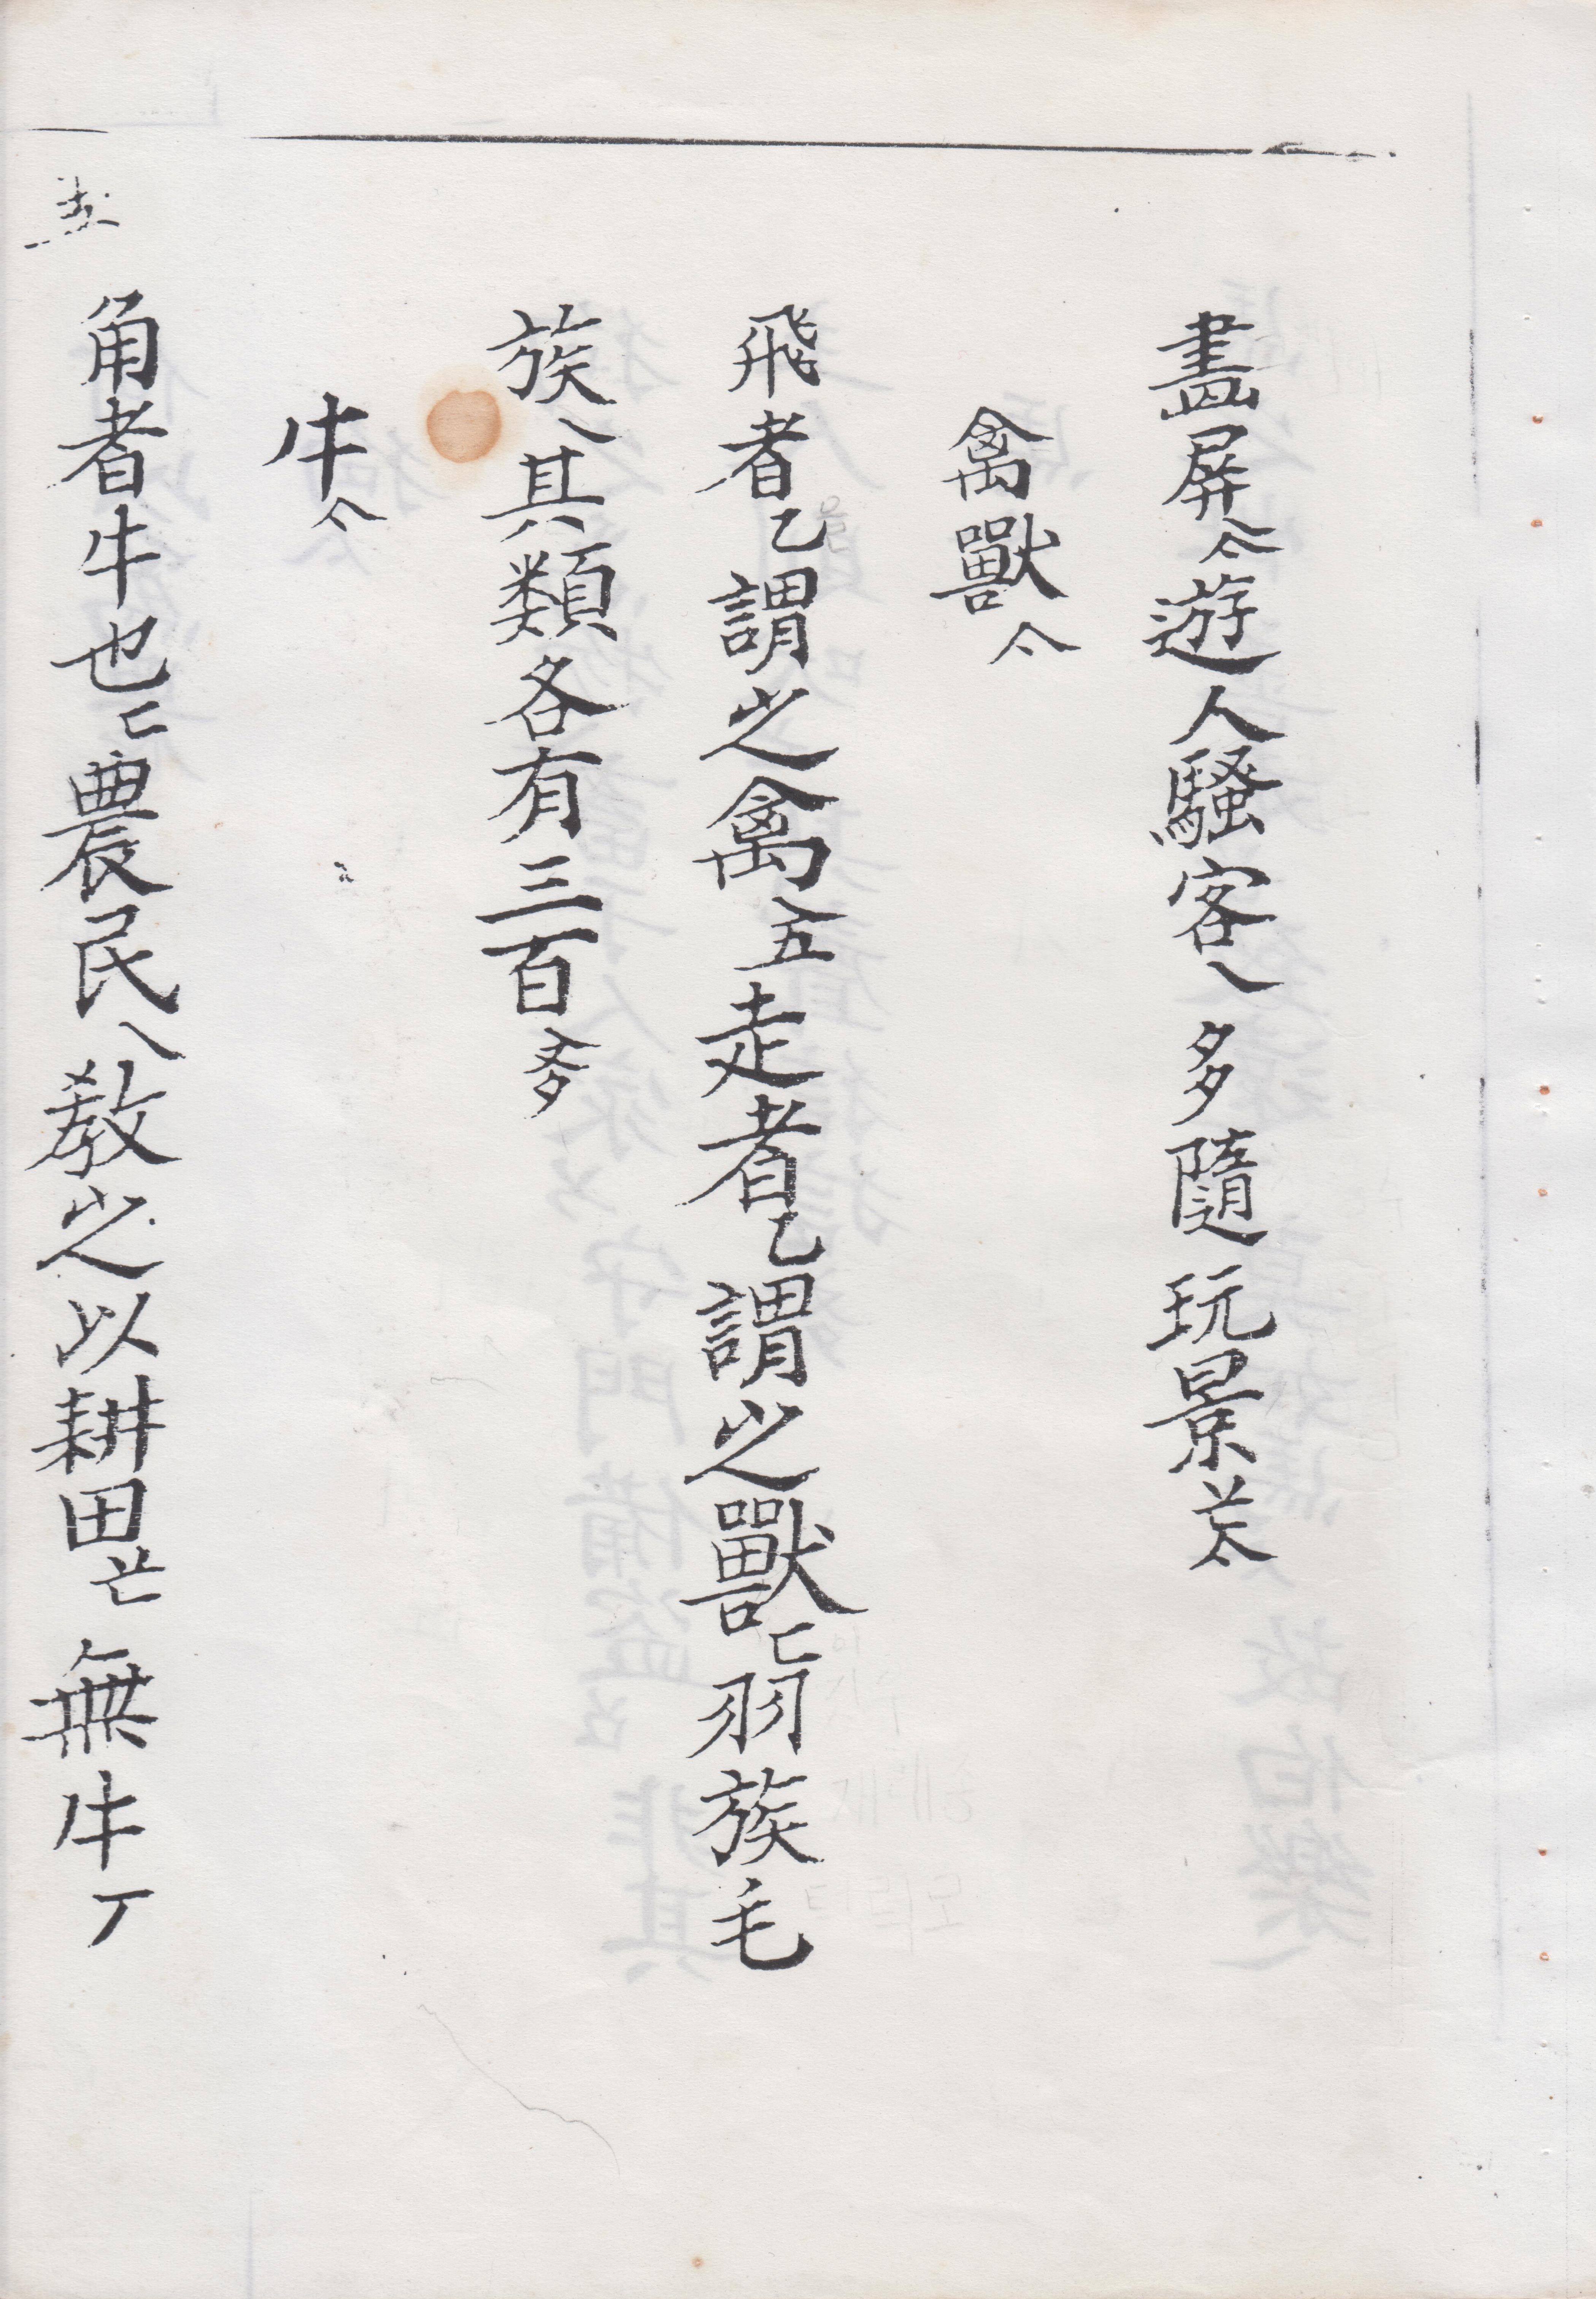 畵屛亽遊人騷客乀多隨玩景䒑亽
禽獸亽
飛者乙謂之禽五走者乙謂之獸匕羽族毛
族乀其類各有三百
牛亽
角者牛也匕農民乀敎之以耕田 無牛丆